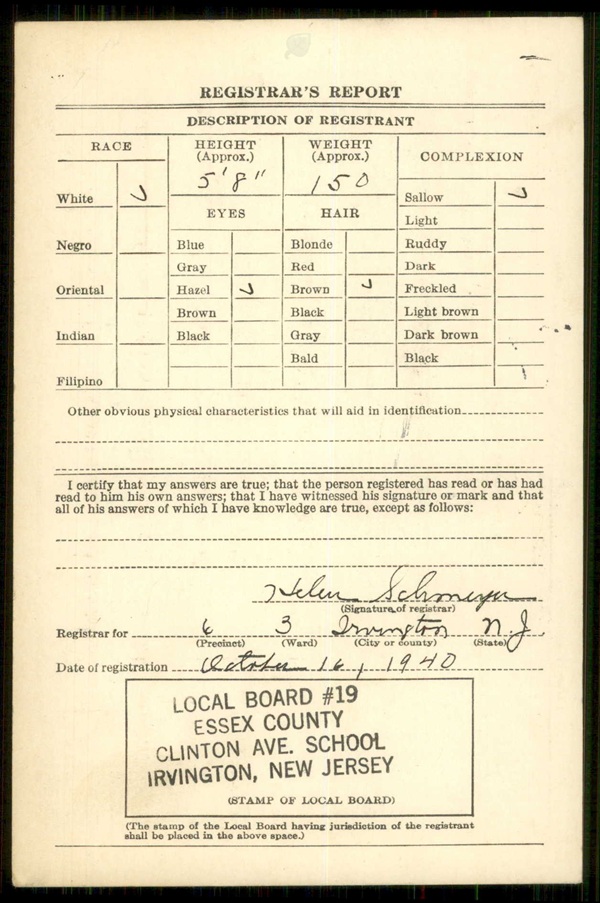 REGISTRAR'S REPORT
DESCRIPTION OF REGISTRANT
RACE
HEIGHT
(Approx.)
WEIGHT
(Approx.)
COMPLEXION
5' 8"
150
White
Sallow
EYES
HAIR
Light
Negro
Blue
Blonde
Ruddy
Gray
Red
Dark
Oriental
Hazel
Brown
Freckled
Brown
Black
Light brown
Indian
Black
Gray
Dark brown
Bald
Black
Filipino
Other obvious physical characteristics that will aid in identification
I certify that my answers are true; that the person registered has read or has had
read to him his own answers; that I have witnessed his signature or mark and that
all of his answers of which I have knowledge are true, except as follows:
Helen
(Signature of registrar)
Registrar for 6 3 Irvington N.J.
(Precinct) (Ward) (City or county) (State)
Date of registration October 16, 1940
LOCAL BOARD #19
ESSEX COUNTY
CLINTON AVE. SCHOOL
IRVINGTON, NEW JERSEY
(STAMP OF LOCAL BOARD)
(The stamp of the Local Board having jurisdiction of the registrant
shall be placed in the above space.)